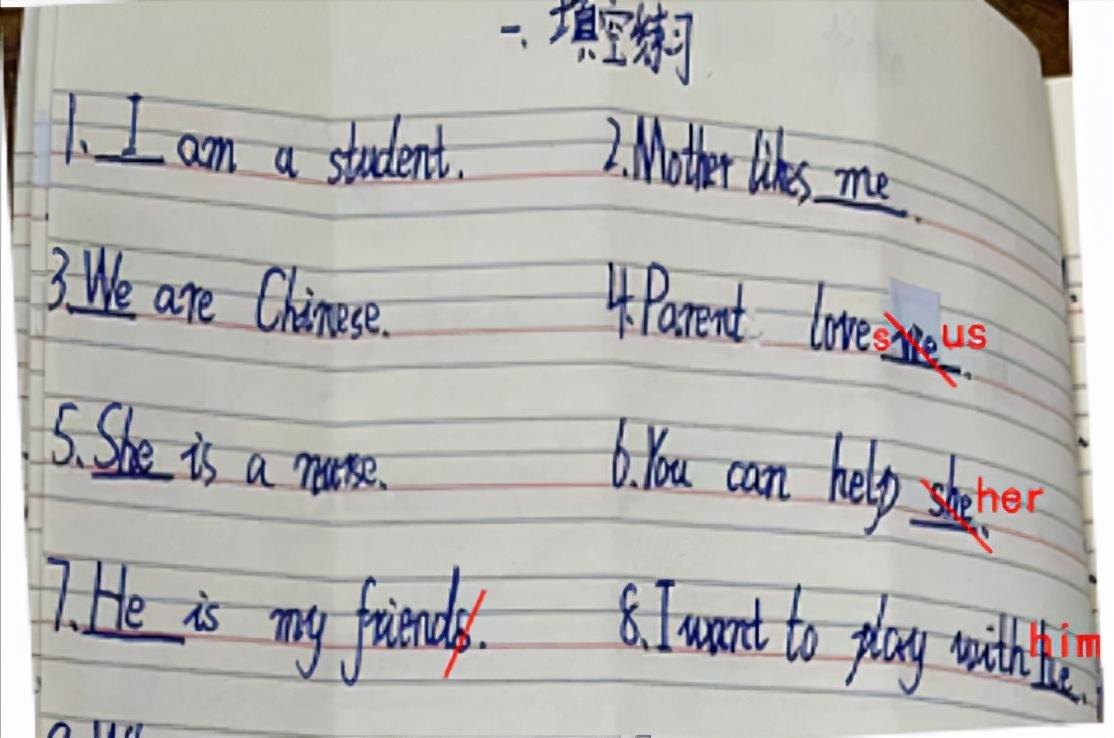 一、填空练习
1. I am a student. 2. Mother likes me.
3. We are Chinese. 4. Parent loves we us.
5. She is a nurse. 6. You can help she her.
7. He is my friends. 8. I want to play with he him.